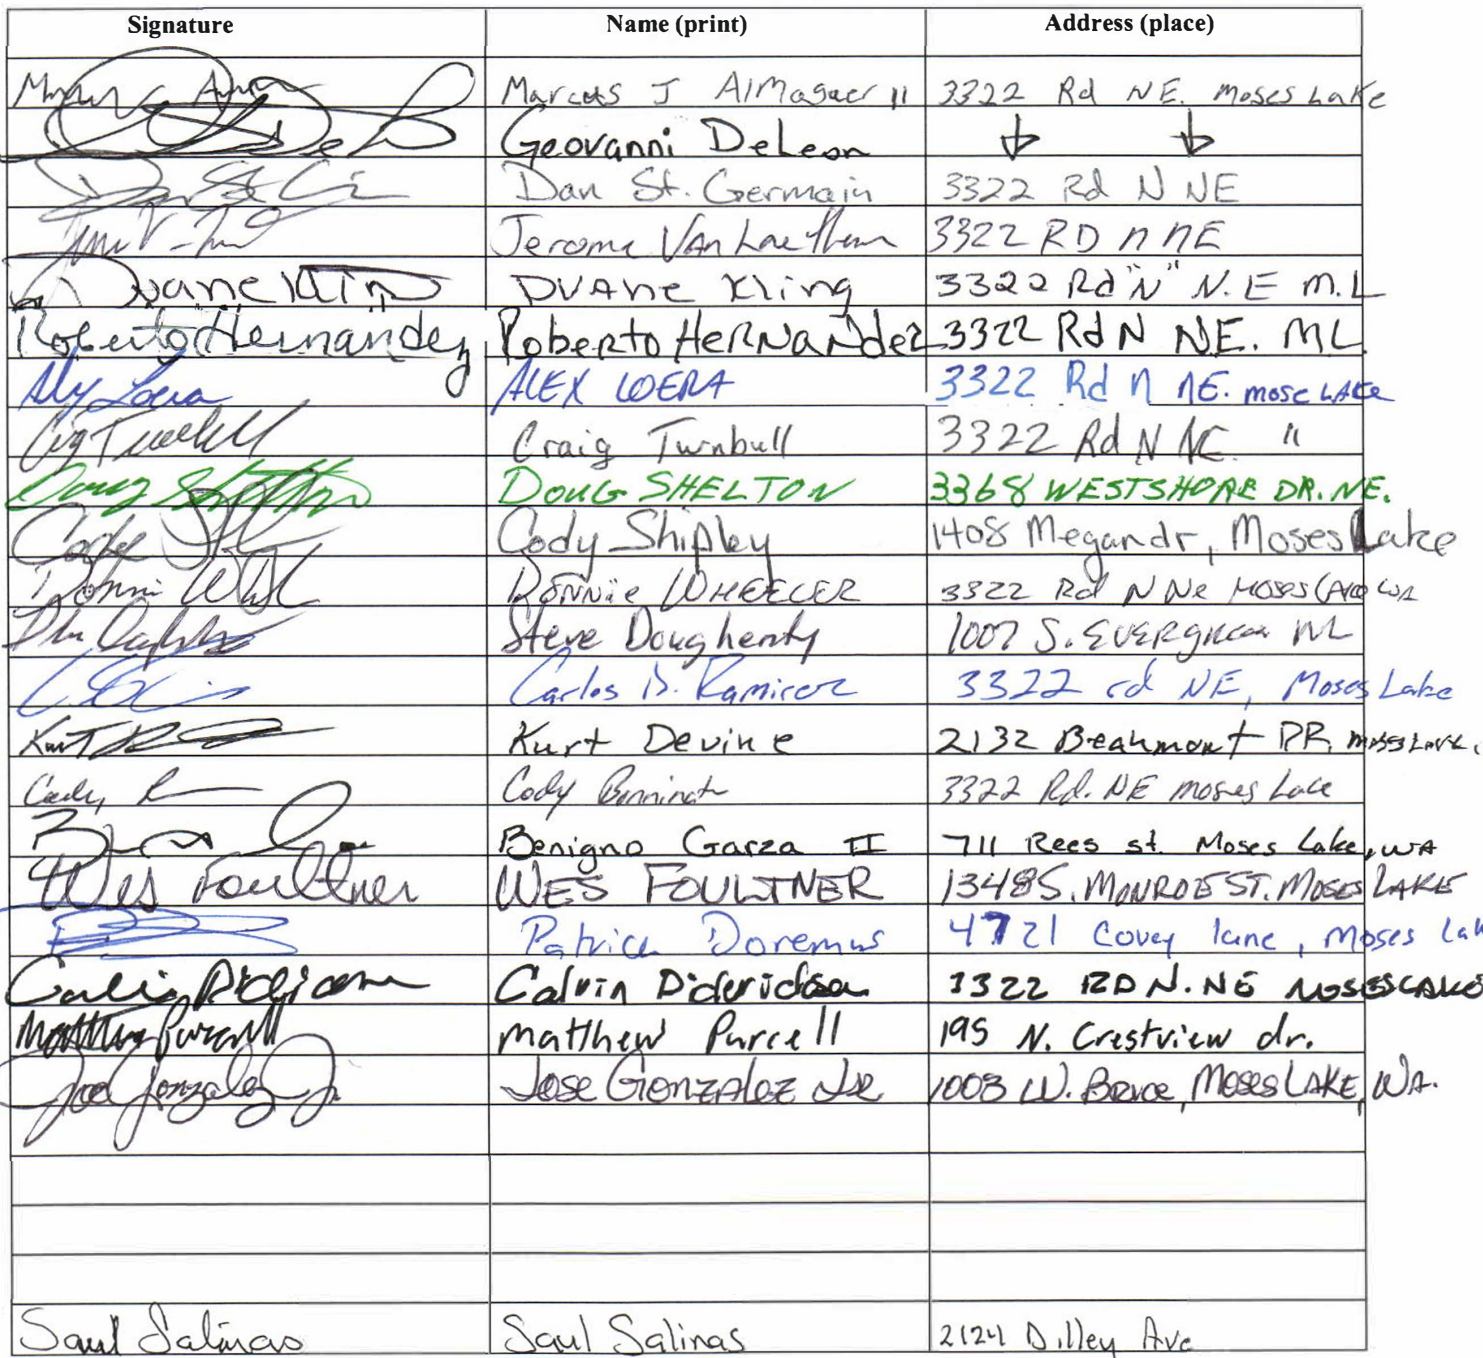 Signature Name (print) Address (place)
Marcus J AlMaguer II 3322 Rd NE. Moses Lake
Geovanni DeLeon ↓ ↓
Dan St. Germain 3322 Rd N NE
Jerome VanLaethem 3322 RD n nE
Duane Kling DUAne Kling 3322 Rd "N" N.E M.L
Roberto Hernandez Roberto HeRNaNdez 3322 Rd N NE. ML.
Alex Loera ALEX LOERA 3322 Rd n nE. mose LAKe
Craig Turnbull 3322 Rd N NE. "
Doug Shelton DOUG SHELTON 3368 WESTSHORE DR. NE.
Cody Shipley 1408 Megan dr, Moses Lake
Ronnie WHEELER 3322 Rd N Ne Moses Lake WA
Steve Dougherty 1007 S. EVERGReen ML
Carlos D. Ramirez 3322 rd NE, Moses Lake
Kurt Kurt Devine 2132 Beaumont DR, moses Lake.
Cody Cody 3322 Rd. NE moses Lake
Benigno Garza II 711 Rees st. Moses Lake, WA
Wes Foultner WES FOULTNER 1348 S. MONROE ST. MOSES LAKE
Patrick Doremus 4721 Covey lane, Moses Lak
Calvin Dideriksen 3322 RD N. NE MOSES LAKE
Matthew Purcell matthew Purcell 195 N. Crestview dr.
Jose Gonzalez Jr. Jose GONZAlez JR 1003 W. Bruce, Moses LAKE, WA.
Saul Salinas Saul Salinas 2124 Dilley Ave